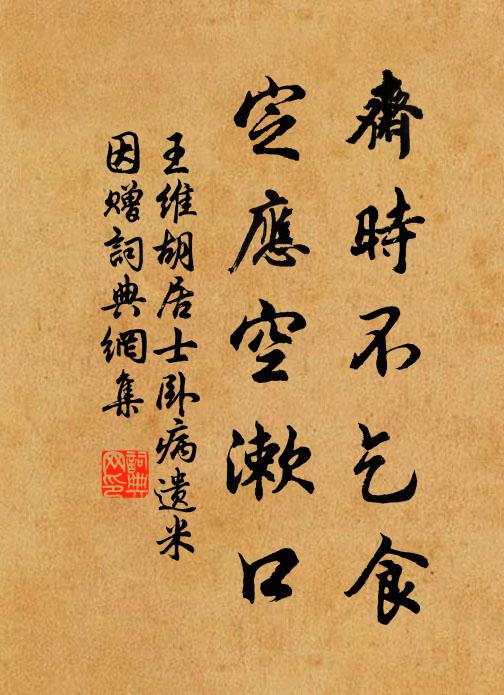 齋時不乞食
定應空漱口
王維胡居士卧病遺米
因贈詞典網集
詞典網印